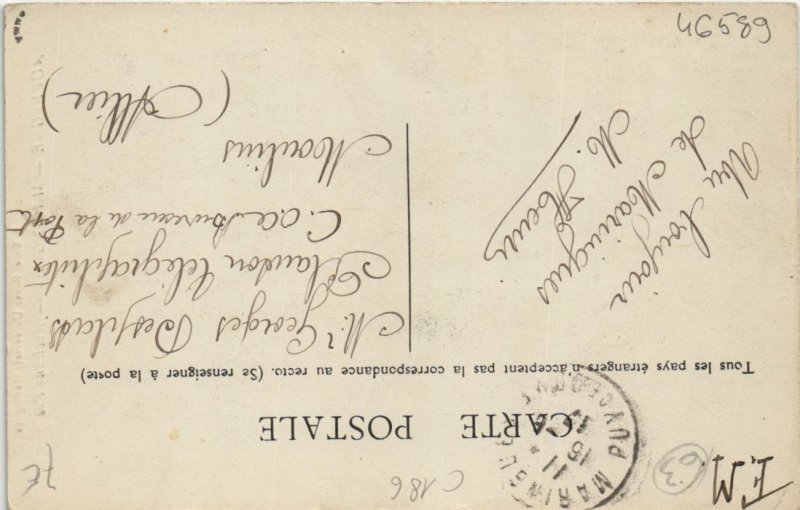 CARTE POSTALE
Tous les pays étrangers n'acceptent pas la correspondance au recto. (Se renseigner à la poste)
Un bonjour
de Maringues
M. Henri
Mr Georges Desplats
télégraphiste
Bureau de la Post
Moulins
(Allier)
MARINGUES
PUY-DE-DOME
11
15
46589
63
EM
C186
7€